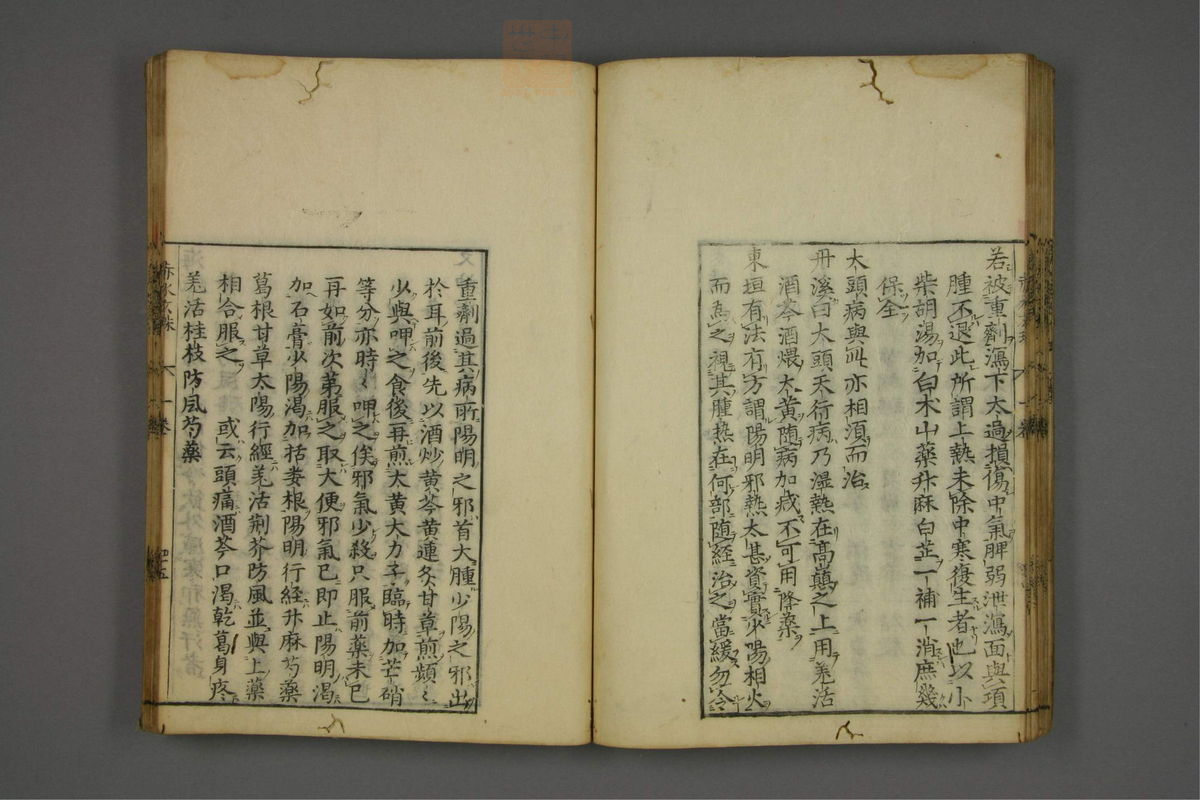 若被重劑瀉下太過損傷中氣脾弱泄瀉面與項
腫不退此所謂上熱未除中寒復生者也以小
柴胡湯加白朮山藥升麻白芷一補一消庶幾
保全
大頭病與此亦相須而治
丹溪曰大頭天行病乃湿熱在高巔之上用羌活
酒芩酒煨大黄随病加减不可用降藥
東垣有法有方謂陽明邪熱太甚資實少陽相火
而為之視其腫熱在何部随經治之當緩勿令
重劑過其病所陽明之邪首大腫少陽之邪出
於耳前後先以酒炒黄芩黄連炙甘草煎頻〻
少與呷之食後再煎大黄大力子臨時加芒硝
等分亦時〻呷之俟邪氣少殺只服前藥未已
再如前次第服之取大便邪氣已即止陽明渇
加石膏少陽渇加栝蔞根陽明行経升麻芍藥
葛根甘草太陽行經羌活荆芥防風並與上藥
相合服之　或云頭痛酒芩口渴乾葛身疼
羌活桂枝防風芍藥